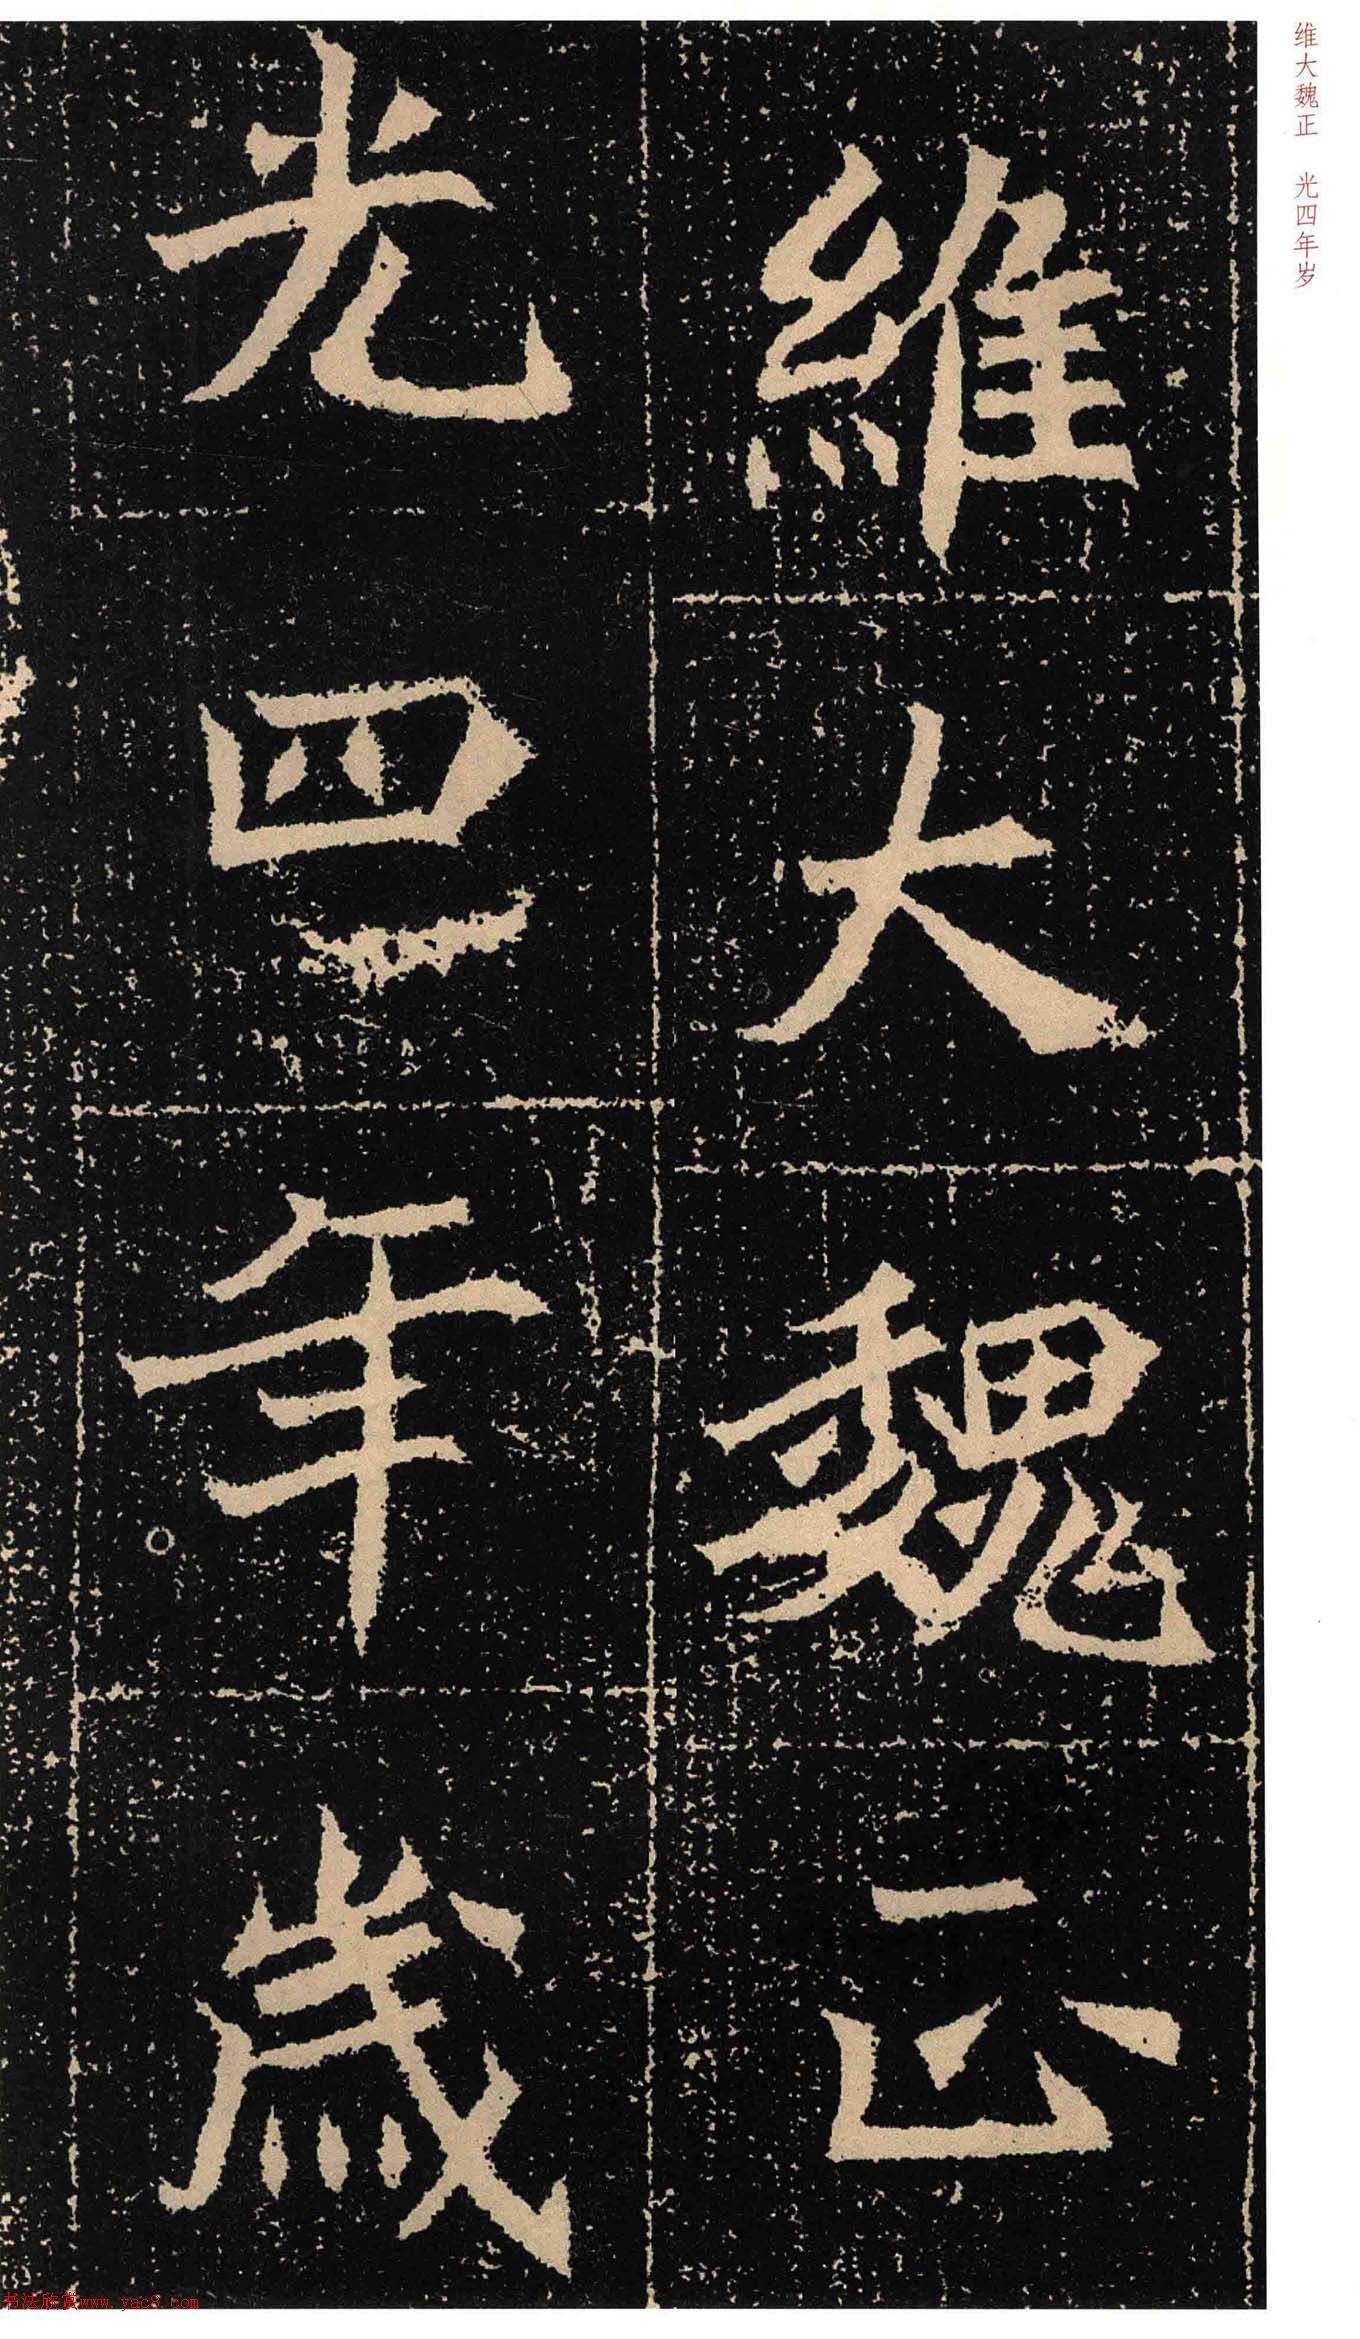 维大魏正 光四年岁
維大魏正
光四年歲
书法欣赏www.yac8.com